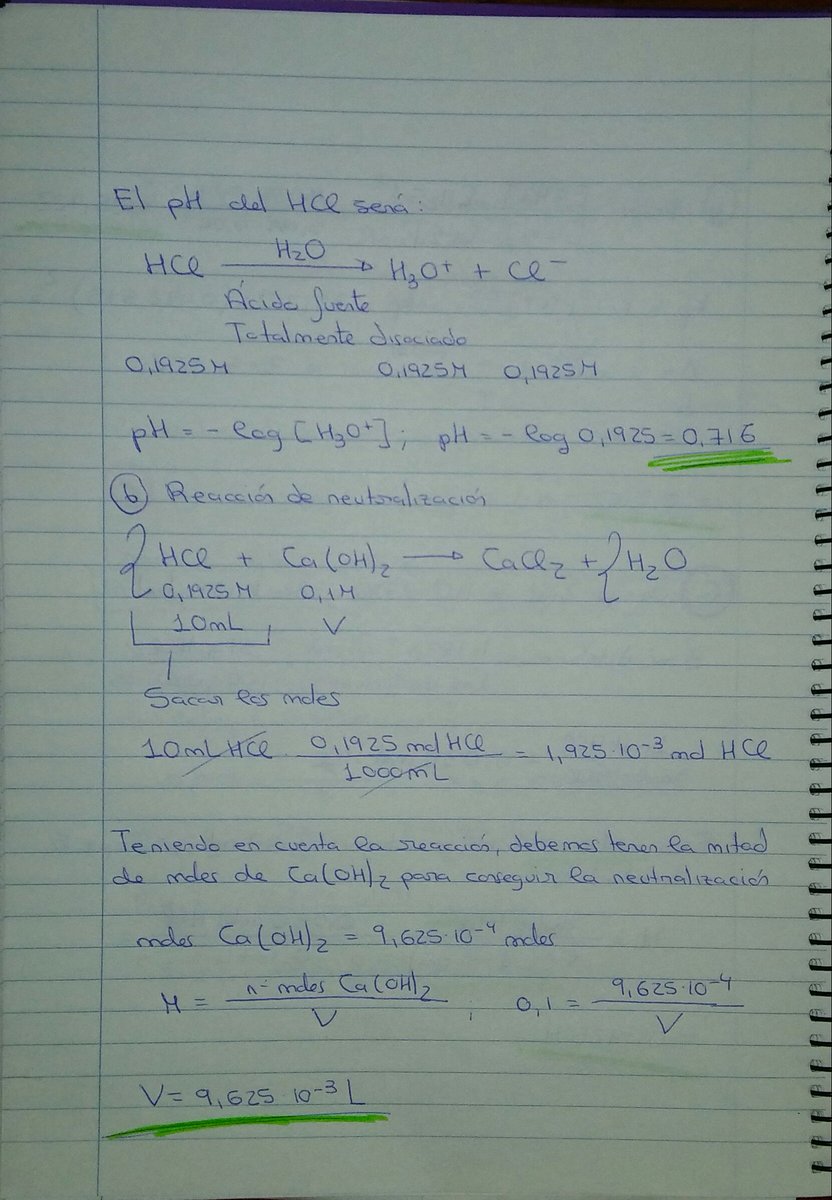 El pH del HCl será:
HCl —H₂O→ H₃O⁺ + Cl⁻
Ácido fuerte
Totalmente disociado
0,1925M 0,1925M 0,1925M
pH = - log [H₃O⁺] ; pH = - log 0,1925 = 0,716
(b) Reacción de neutralización
2 HCl + Ca(OH)₂ → CaCl₂ + 2 H₂O
0,1925M 0,1M
10mL V
Sacar los moles
10mL HCl · 0,1925 mol HCl / 1000mL = 1,925·10⁻³ mol HCl
Teniendo en cuenta la reacción, debemos tener la mitad
de moles de Ca(OH)₂ para conseguir la neutralización
moles Ca(OH)₂ = 9,625·10⁻⁴ moles
M = nº moles Ca(OH)₂ / V ; 0,1 = 9,625·10⁻⁴ / V
V = 9,625·10⁻³ L